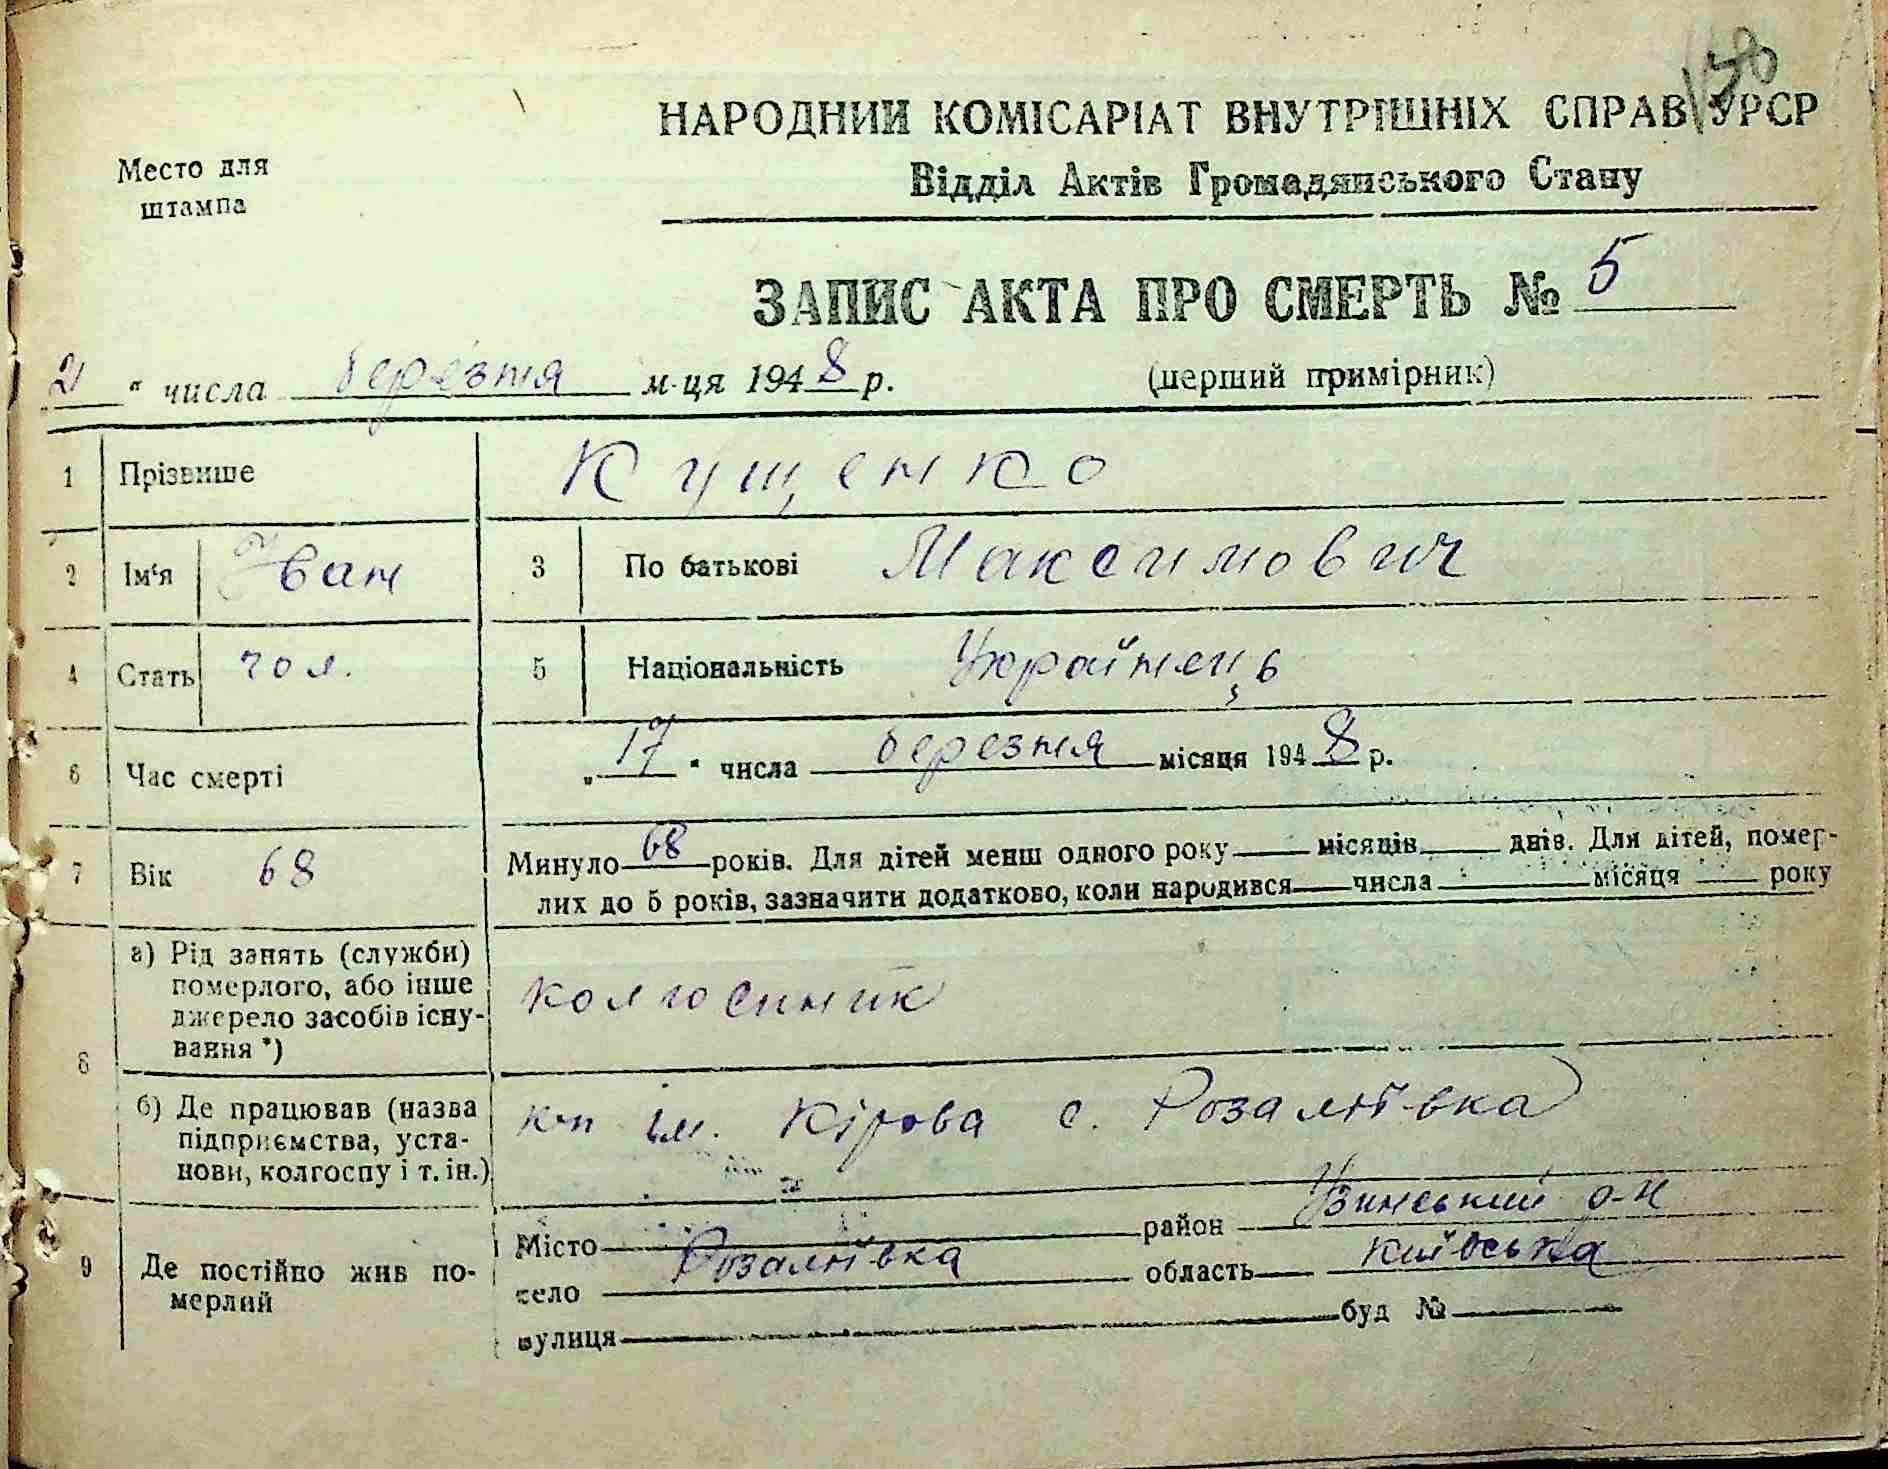 130
НАРОДНИЙ КОМІСАРІАТ ВНУТРІШНІХ СПРАВ УРСР
Место для
штампа
Відділ Актів Громадянського Стану
ЗАПИС АКТА ПРО СМЕРТЬ № 5
21 " числа березня м-ця 1948 р. (перший примірник)
1 Прізвише Кущенко
2 Ім'я Іван 3 По батькові Максимович
4 Стать чол. 5 Національність Українець
6 Час смерті „17" числа березня місяця 1948 р.
7 Вік 68 Минуло 68 років. Для дітей менш одного року — місяців — днів. Для дітей, помер-
лих до 5 років, зазначити додатково, коли народився — числа — місяця — року
8 а) Рід занять (служби)
померлого, або інше
джерело засобів існу-
вання *) колгоспник
б) Де працював (назва
підприємства, уста-
нови, колгоспу і т. ін.) кп ім. Кірова с. Розаліївка
9 Де постійно жив по-
мерлий
Місто район Узинський р-н
село Розаліївка область київська
вулиця буд №